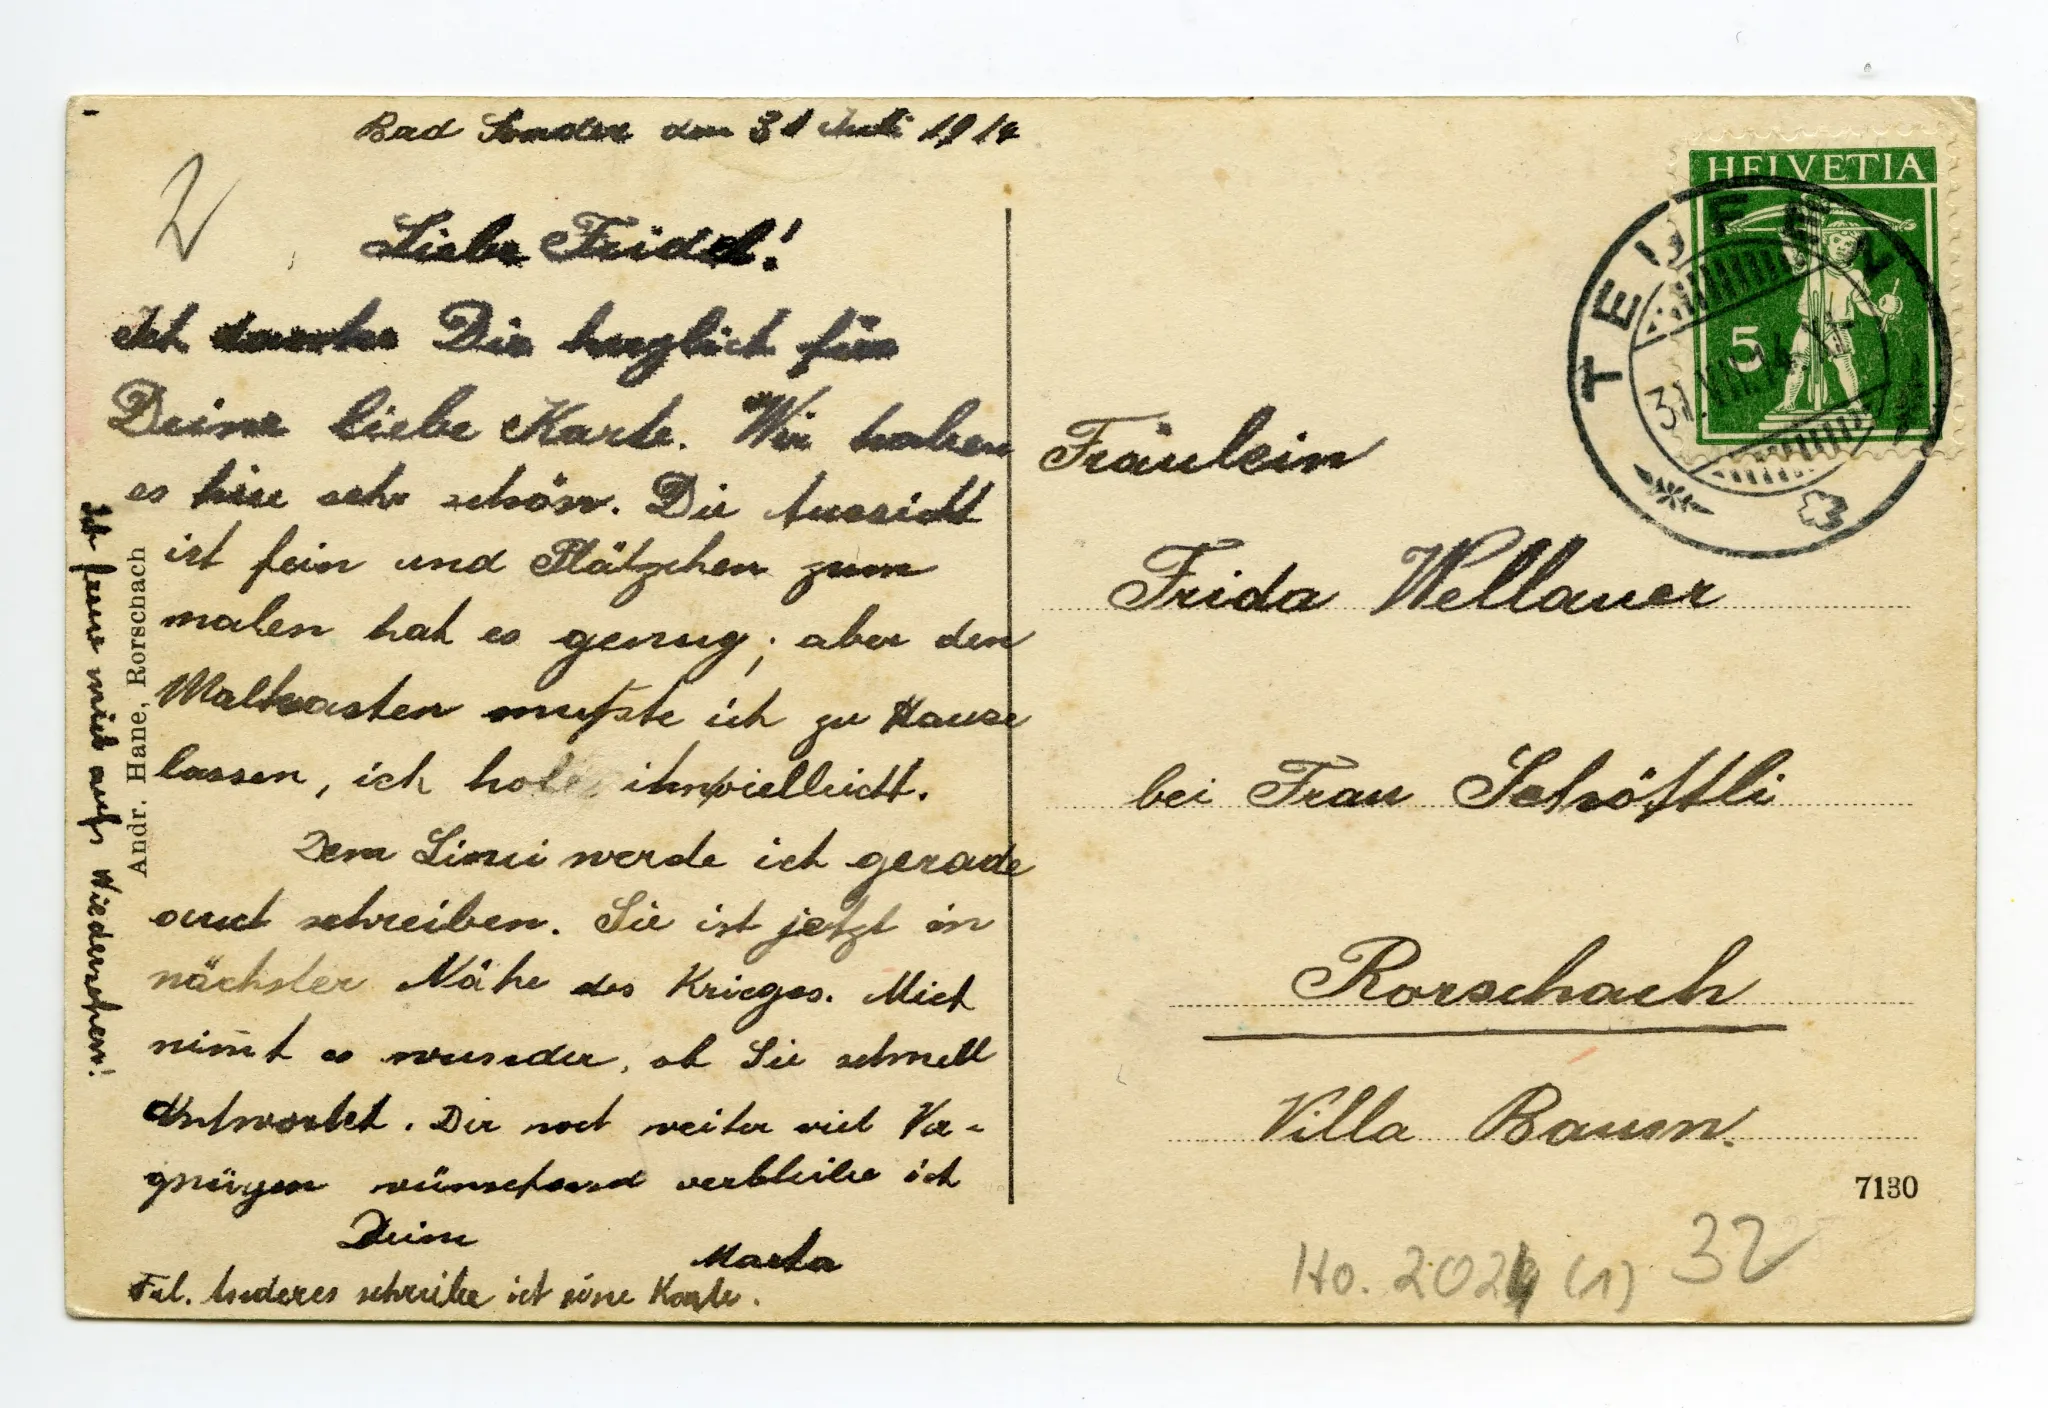 Bad Sonder den 31 Juli 1914
2
Liebe Frida!
Ich danke Dir herzlich für
Deine liebe Karte. Wir haben
es hier sehr schön. Die Aussicht
ist fein und Plätzchen zum
malen hat es genug; aber den
Malkasten mußte ich zu Hause
lassen, ich hole ihn vielleicht.
Dem Linui werde ich gerade
auch schreiben. Sie ist jetzt in
nächster Nähe des Krieges. Mich
nim̅t es wunder, ob Sie schnell
Antwortet. Dir noch weiter viel Ver-
gnügen wünschend verbleibe ich
Deine
Marta
Frl. Anderes schreibe ich eine Karte.
Ich freue mich aufs Wiedersehen!
Andr. Hane, Rorschach
HELVETIA
5
TEUFEN
31.VII.14.
Fräulein
Frida Wellauer
bei Frau Schöttli
Rorschach
Villa Baum.
7130
Ho. 2024 (1) 32